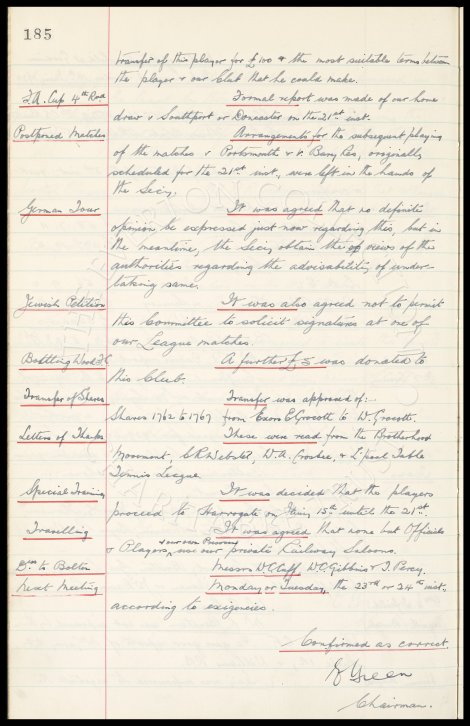 185
transfer of this player for £100 & the most suitable terms between
the player & our Club that he could make.
F.A. Cup 4th Rnd. Formal report was made of our home
draw v Southport or Doncaster on the 21st inst.
Postponed Matches Arrangements for the subsequent playing
of the matches v Portsmouth & v. Bury Res, originally
scheduled for the 21st inst., were left in the hands of
the Secy.
German Tour It was agreed that no definite
opinion be expressed just now regarding this, but in
the meantime, the Secy obtain the views of the
authorities regarding the advisability of under-
taking same.
Jewish Petition It was also agreed not to permit
this Committee to solicit signatures at one of
our League matches.
A further £5 was donated to
this Club.
Transfer of Shares Transfer was approved of:-
Shares 1762 to 1767 from Exors E Grocott to W. Grocott.
Letters of Thanks These were read from the Brotherhood
Movement, C.R. Webster, W.A. & L'pool Table
Tennis League
Special Training It was decided that the players
proceed to Harrogate on 15th until the 21st.
Travelling It was agreed that none but Officials
& our own Pressmen
& Players, use our private Railway Saloons.
Drs to Bolton Messrs W. C. Cuff, W. C. Gibbins & T. Percy.
Next Meeting Monday or Tuesday, the 23rd or 24th inst,
according to exigencies.
Confirmed as correct.
E Green
Chairman.